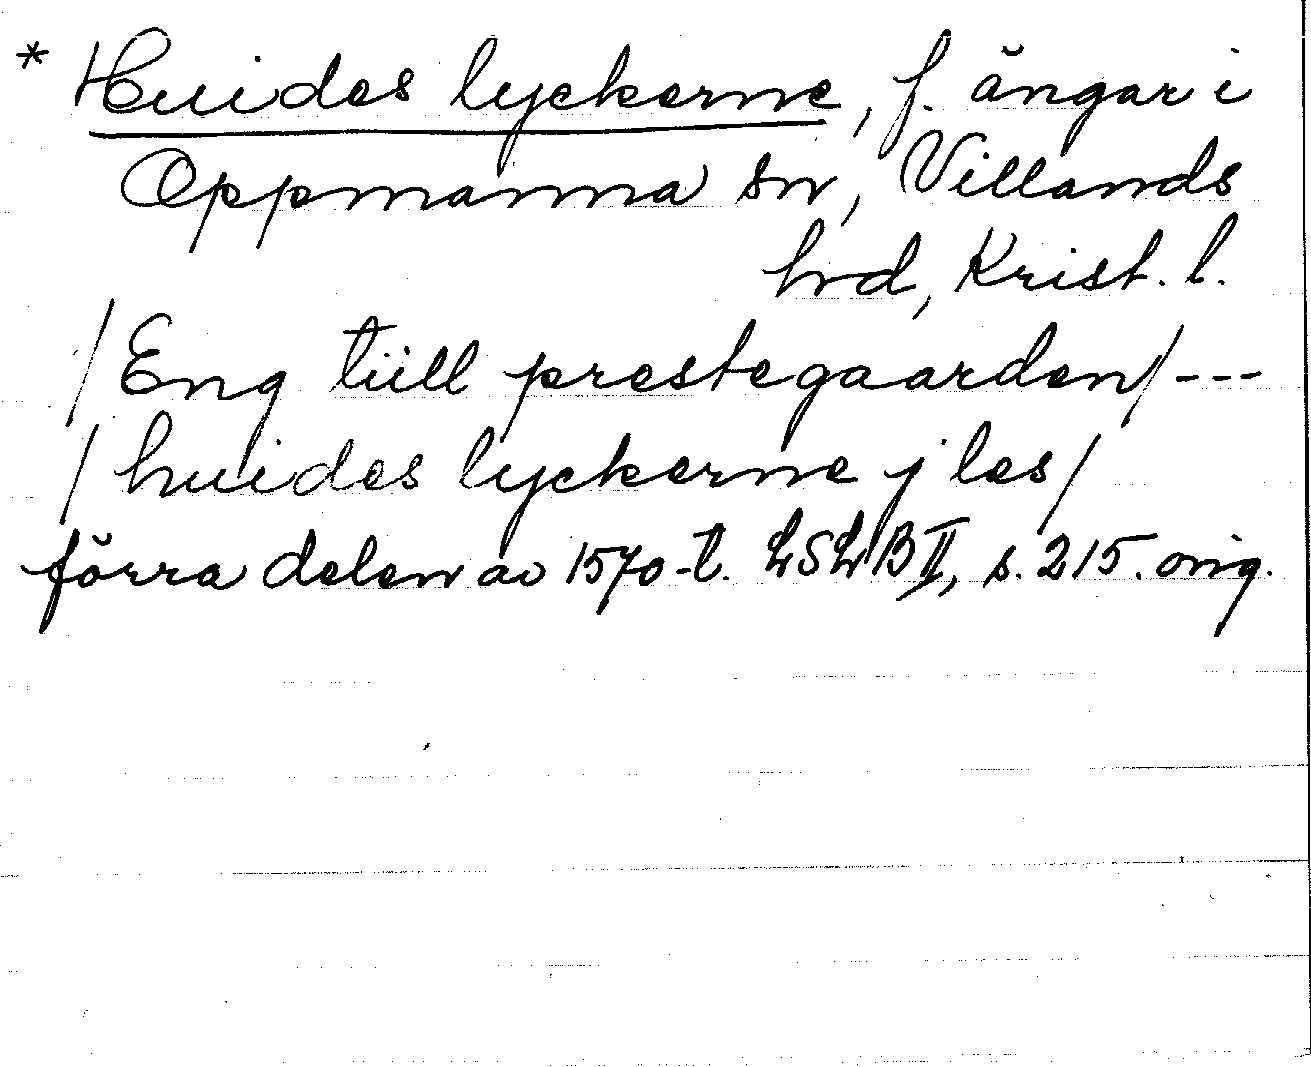 * Huides lyckerne, f. ängar i
Oppmanna sn, Villands
hrd, Krist. l.
/Eng tiill prestegaarden/---
/huides lyckerne j les/
förra delen av 1570-t. LSLB II, s. 215. orig.